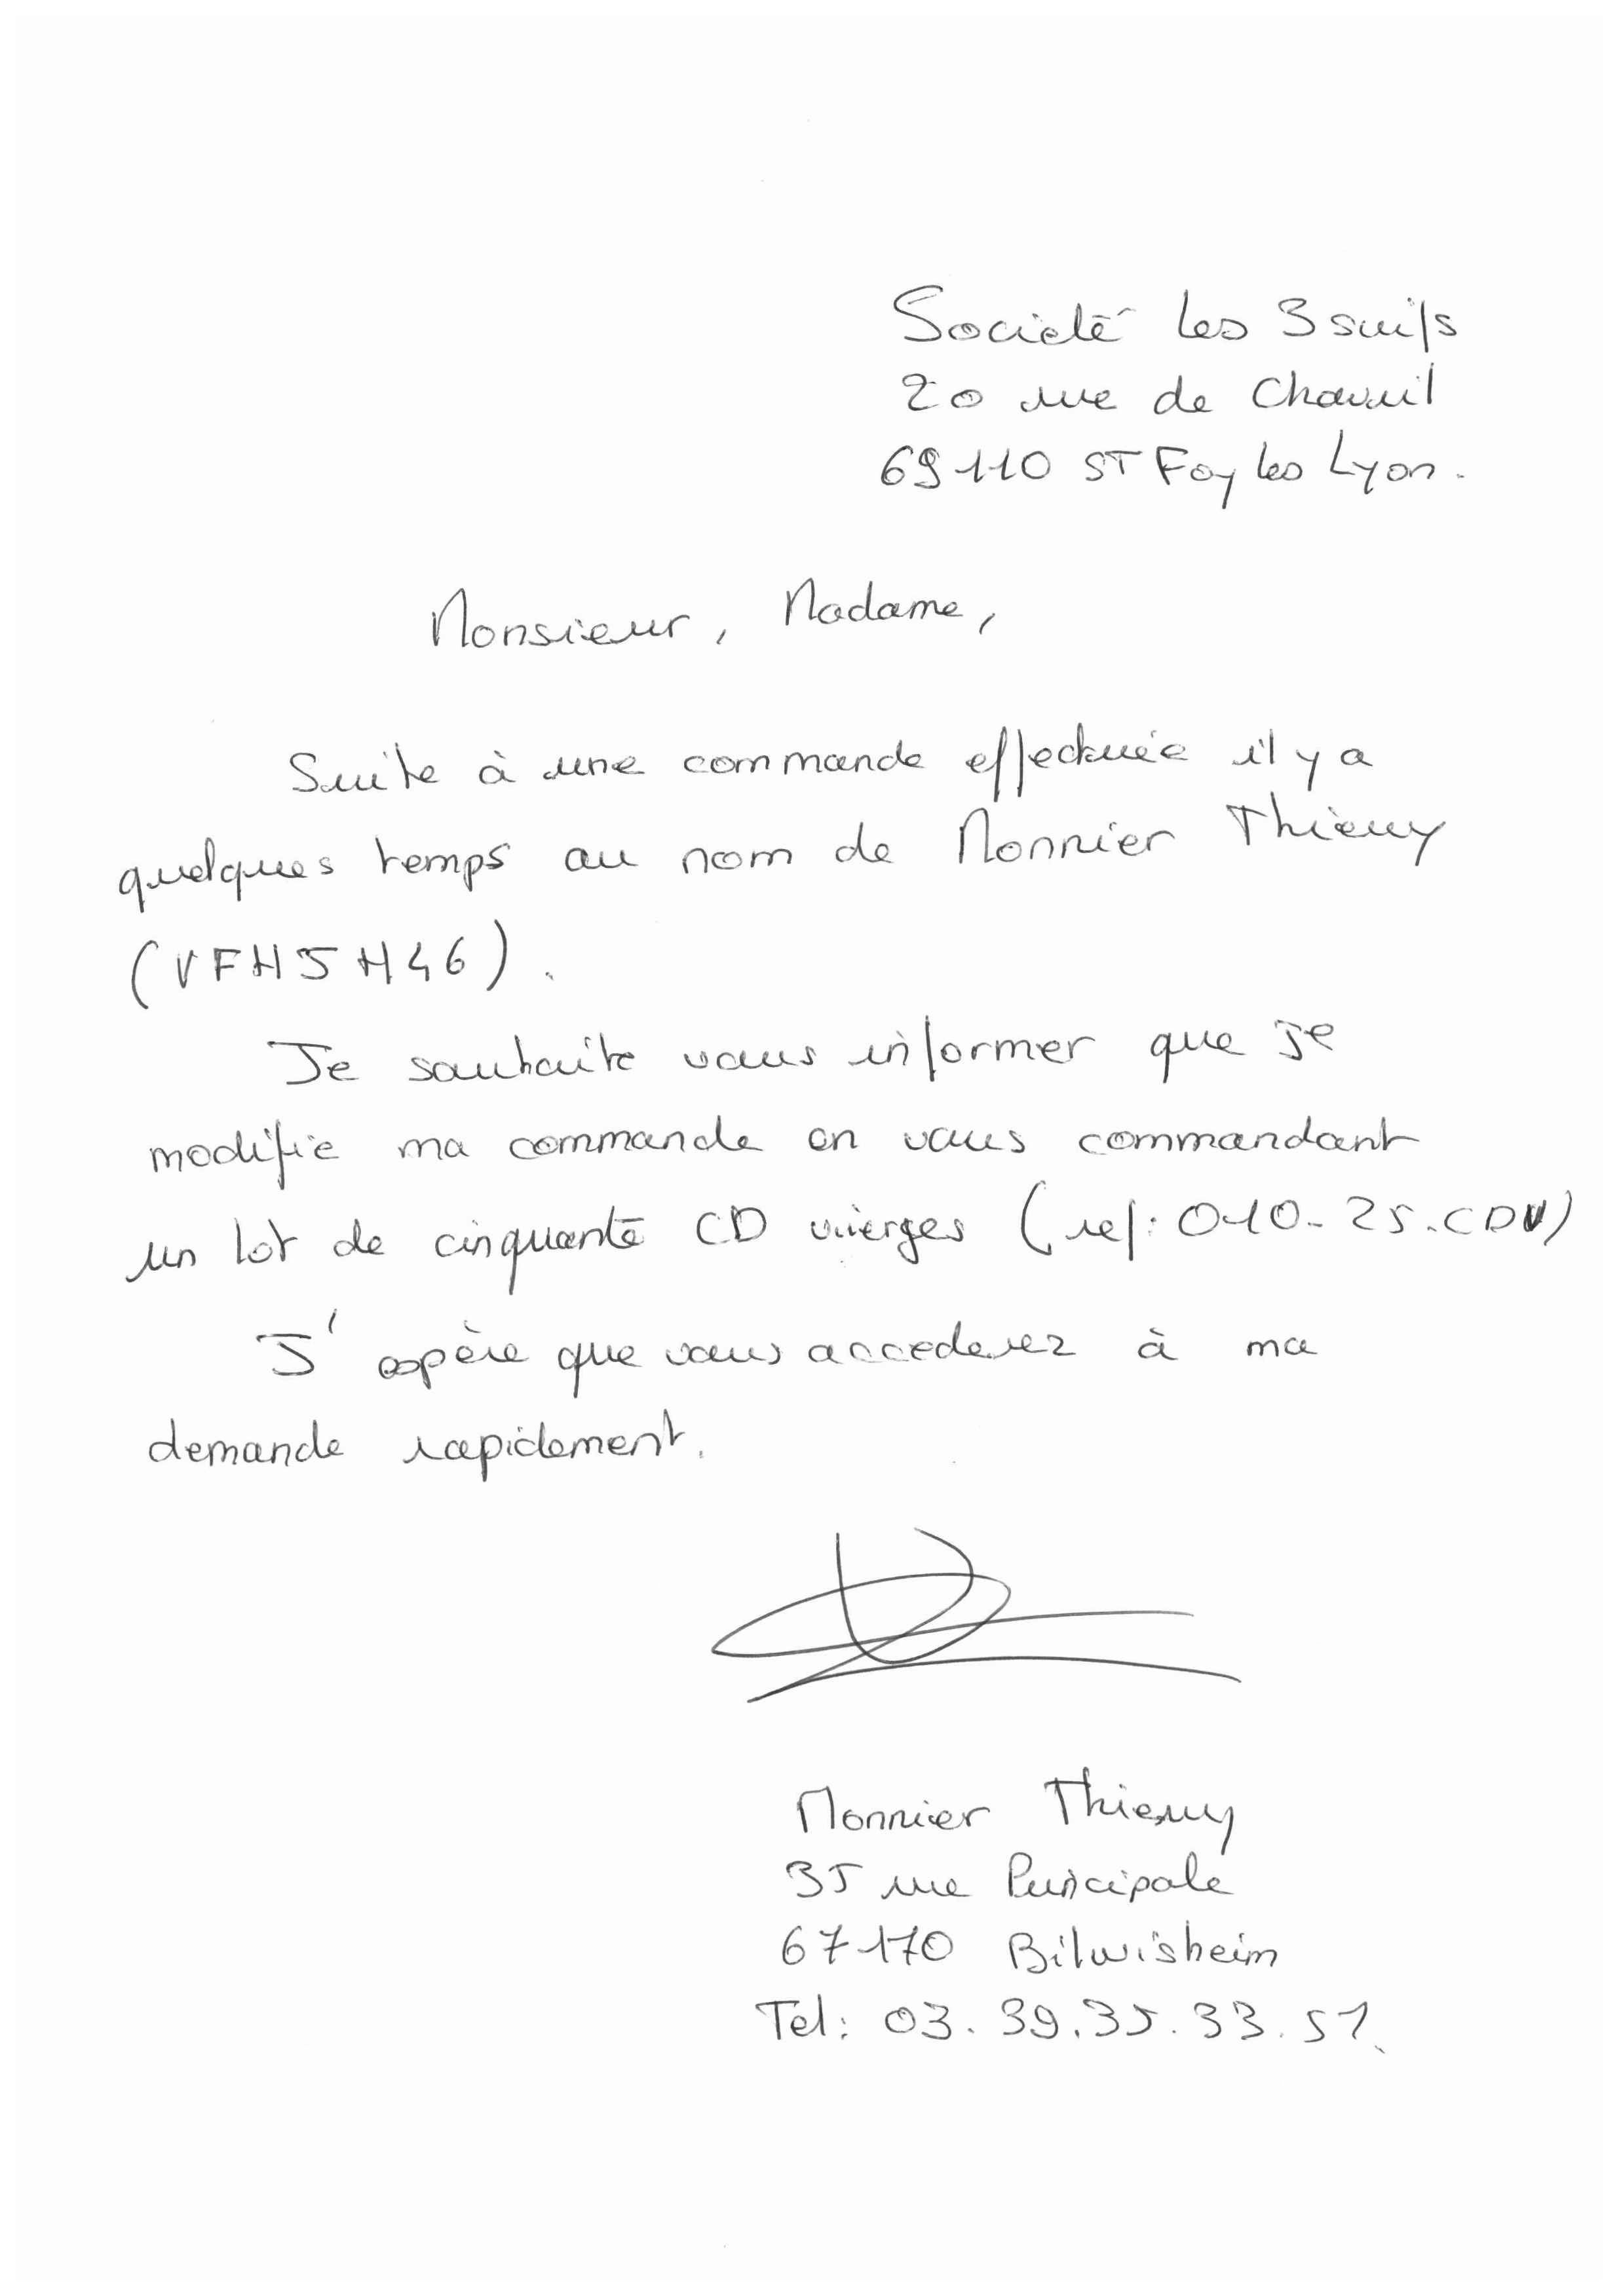 Société les 3 suifs
20 rue de Chavril
69110 ST Foy les Lyon.
Monsieur, Madame,
Suite à une commande effectuée il y a
quelques temps au nom de Monnier Thierry
(VFH5H46).
Je souhaite vous informer que je
modifie ma commande en vous commandant
un lot de cinquante CD vierges (ref: 010-25.CDV)
J'espère que vous accederez à ma
demande rapidement.
Monnier Thierry
35 rue Principale
67170 Bilwisheim
Tel: 03.39.35.33.51.